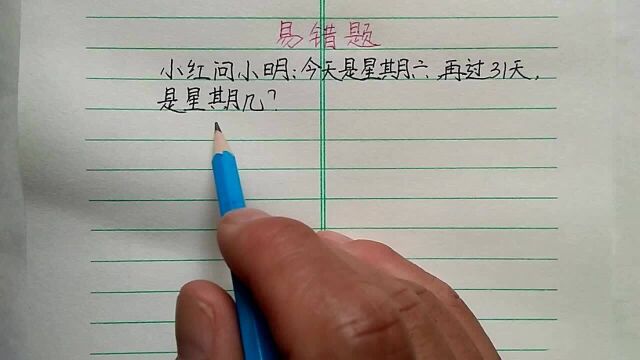 易错题
小红问小明:今天是星期六,再过31天,
是星期几?